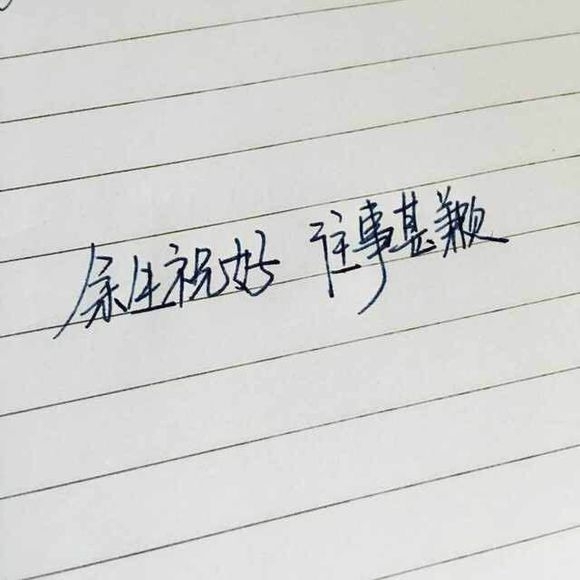 余生祝好 往事甚歉